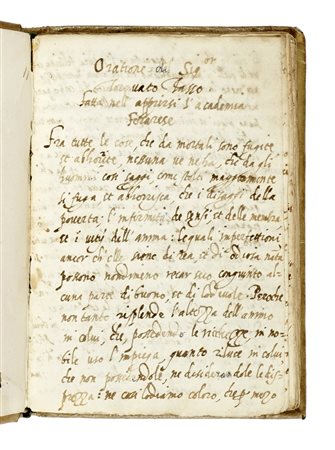 Oratione del Sig.or
Torquato Tasso
fatta nell'aprirsi l'Academia
Ferrarese
Fra tutte le cose, che da mortali sono fugite
et abhorite, nessuna ve ne ha, che da gli
huomini così saggi come stolti maggiormente
si fuga et abhorisca, che i disagi della
povertà: l'infirmità de sensi, et delle membra
et i vitij dell'anima: le quali imperfettioni
ancor ch'elle siano di rea, et di natura
possono nondimeno recar seco congiunto al
cuna parte di buono, et di lodevole. Percioche
non tanto risplende l'altezza dell'animo
in colui, che, possedendo le ricchezze, in no
bile uso l'impiega, quanto riluce in colui
che non possedendole, ne desiderandole le dis
prezza: ne così lodiamo coloro, che p mezo